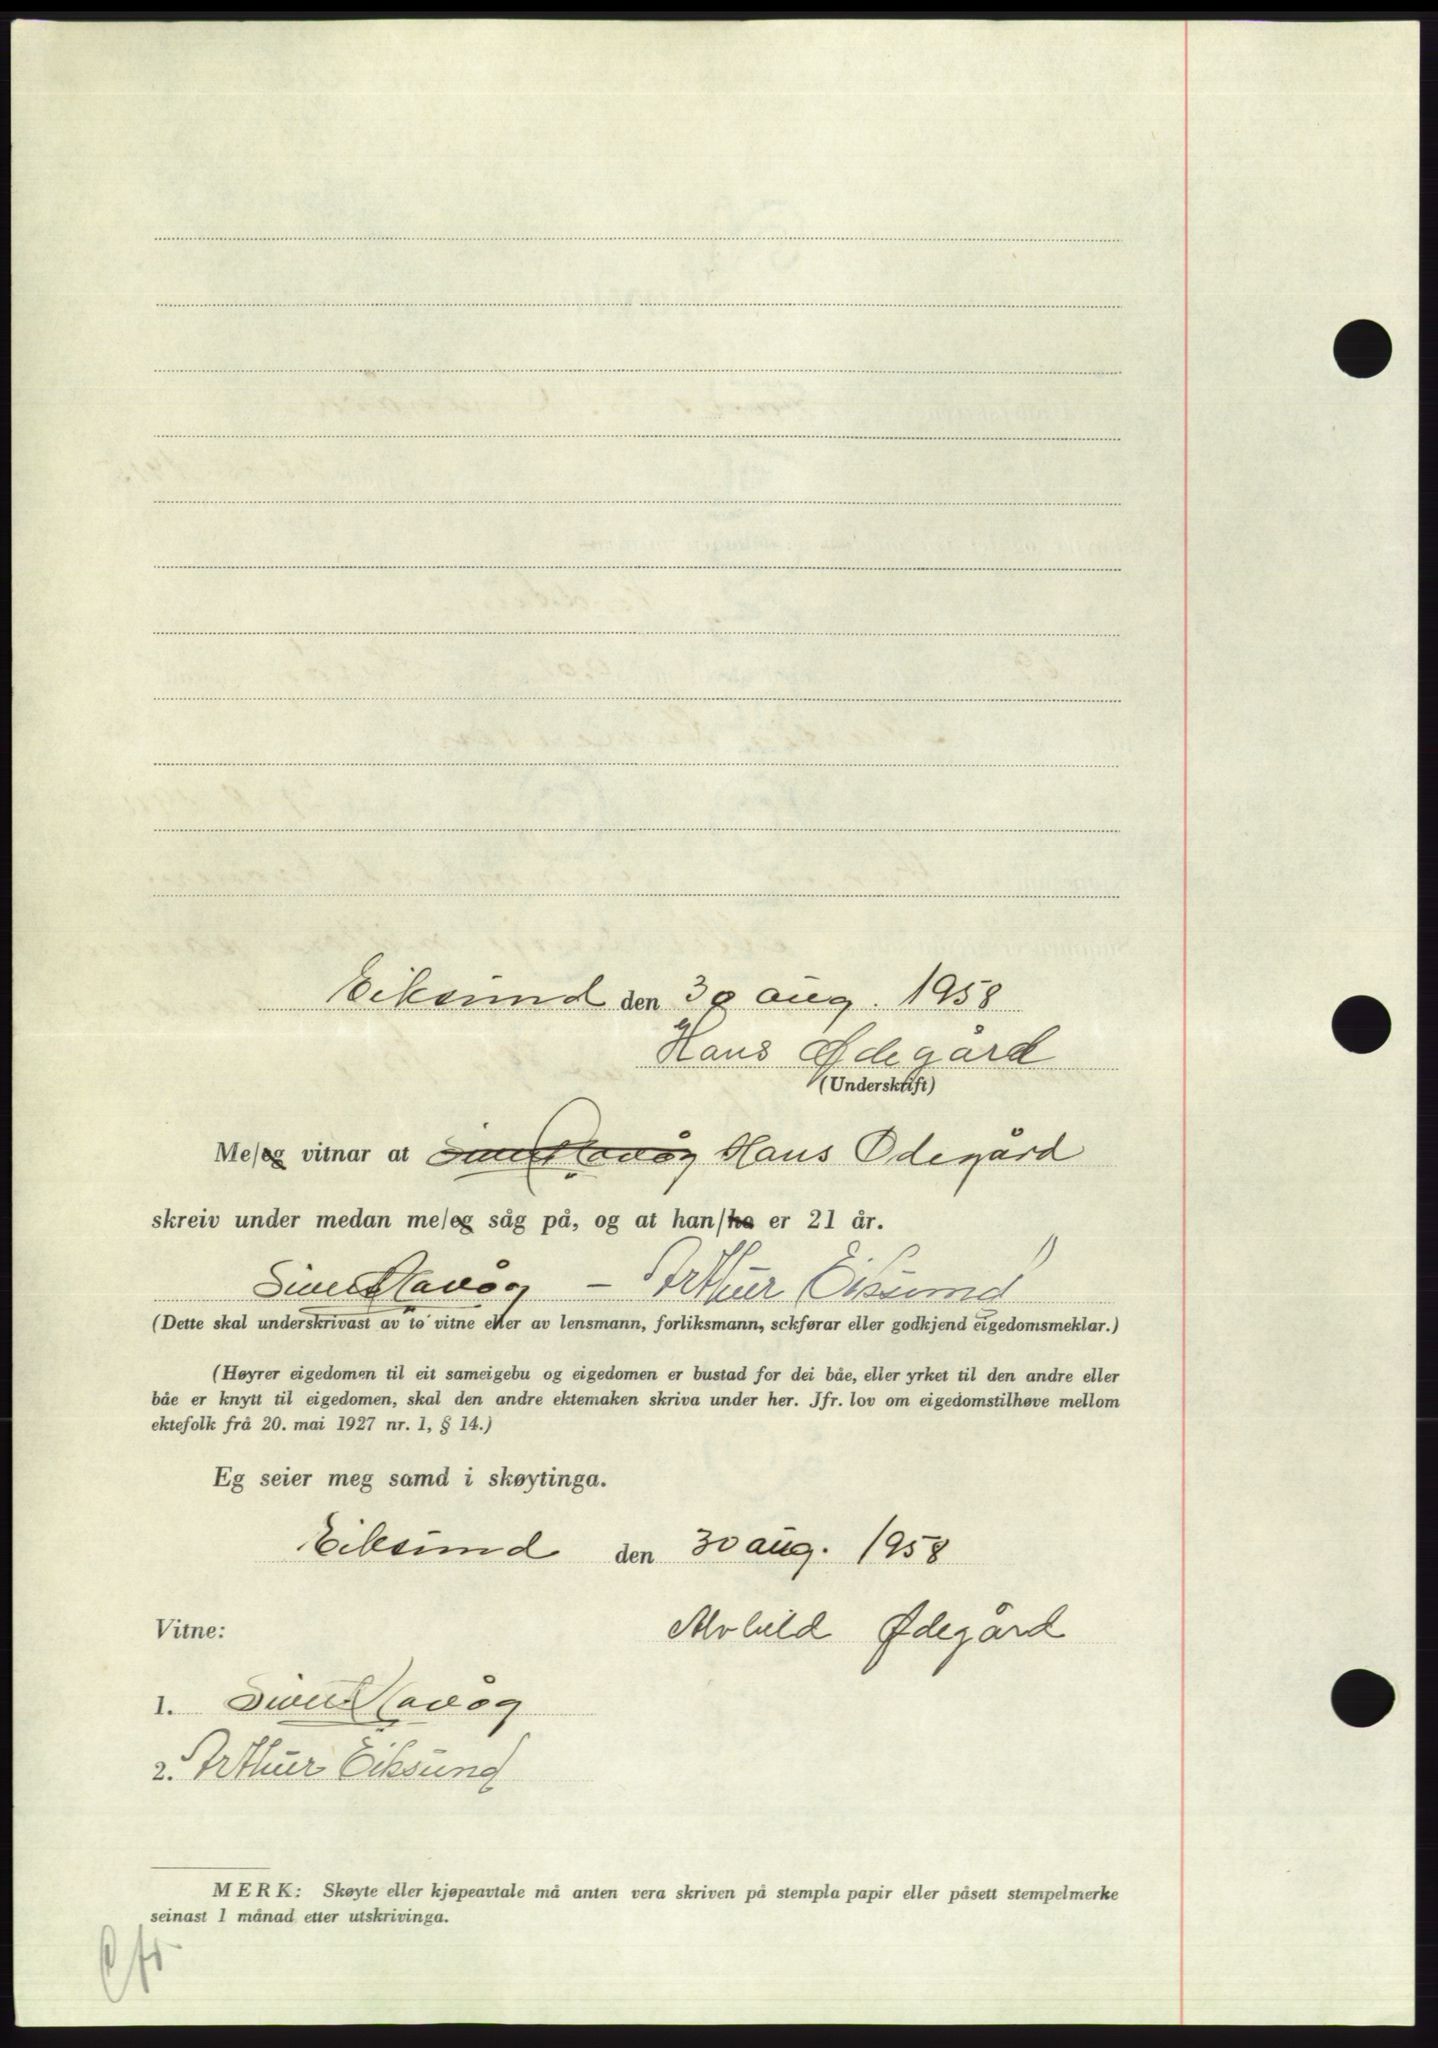 Eiksund den 30 aug. 1958
Hans Ødegård
(Underskrift)
Me/eg vitnar at Sivert Havåg Hans Ødegård
skreiv under medan me/eg såg på, og at han/ho er 21 år.
Sivert Havåg – Arthur Eiksund
(Dette skal underskrivast av to vitne eller av lensmann, forliksmann, sckførar eller godkjend eigedomsmeklar.)
(Høyrer eigedomen til eit sameigebu og eigedomen er bustad for dei båe, eller yrket til den andre eller
båe er knytt til eigedomen, skal den andre ektemaken skriva under her. Jfr. lov om eigedomstilhøve mellom
ektefolk frå 20. mai 1927 nr. 1, § 14.)
Eg seier meg samd i skøytinga.
Eiksund den 30 aug. 1958
Vitne: Alvhild Ødegård
1. Sivert Havåg
2. Arthur Eiksund
MERK: Skøyte eller kjøpeavtale må anten vera skriven på stempla papir eller påsett stempelmerke
seinast 1 månad etter utskrivinga.